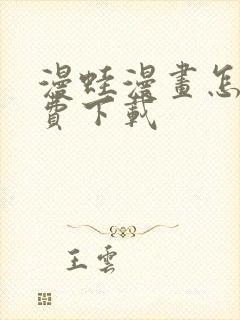 漫蛙漫畫怎
費下載
王雲